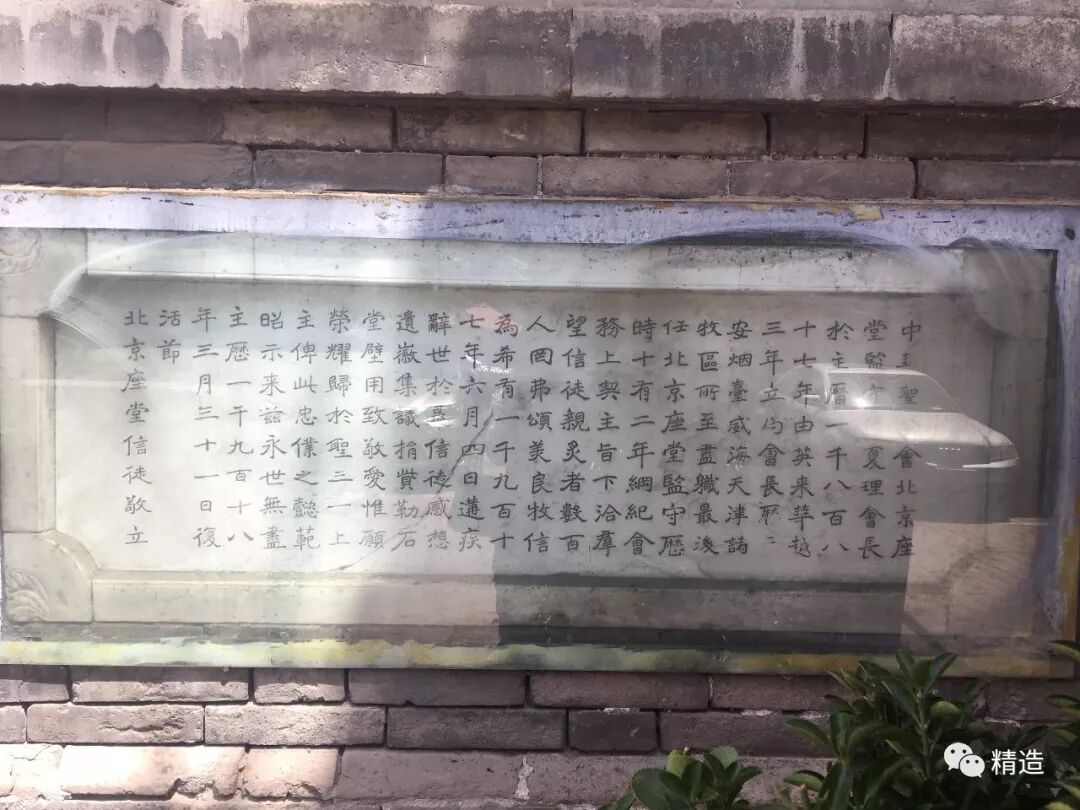 中華聖公會北京座
堂監守夏理會長
於主曆一千八百八
十七年由英来華越
三年立为會長歷二
安烟臺威海天津諸
牧區所至盡職最後
任北京座堂監守歷
時十有二年綱紀會
務上契主旨下洽羣
望信徒親炙者數百
人罔弗頌美良牧信
為希有一千九百十
七年六月四日遘疾
辭世於 信徒感想
遺徽集議捐貲勒石
堂壁用致敬愛惟願
榮耀歸於聖三一上
主俾此忠僕之懿範
昭示来兹永世無盡
主歷一千九百十八
年三月三十一日復
活節
北京座堂信徒敬立
精造